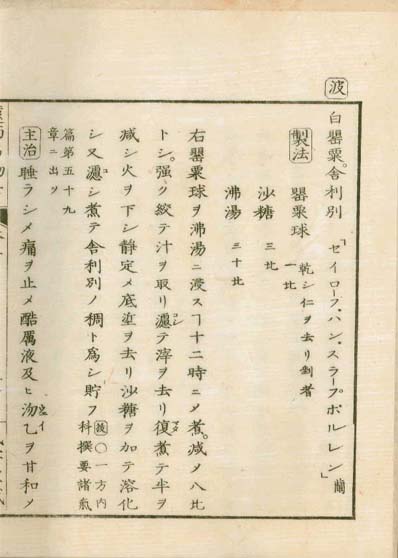 波
白罌粟舍利別「セイロープ、ハン、スラープボルレン」蘭
製法 罌粟球 乾シ仁ヲ去リ剉者 一比
沙糖 三比
沸湯 三十比
右罌粟球ヲ沸湯ニ浸スヿ十二時ニメ煮。减メ八比
トシ。强ク絞テ汁ヲ取リ濾テ滓ヲ去リ復煮テ半ヲ
减シ火ヲ下シ静定メ底 ヲ去リ沙糖ヲ加テ溶化
シ又濾シ煮テ舍利別ノ稠ト為シ貯フ 〇一方内科撰要諸
篇第五十九
章ニ出ツ
主治 睡ラシメ痛ヲ止メ酷厲液及ヒ 乙ヲ甘和メ